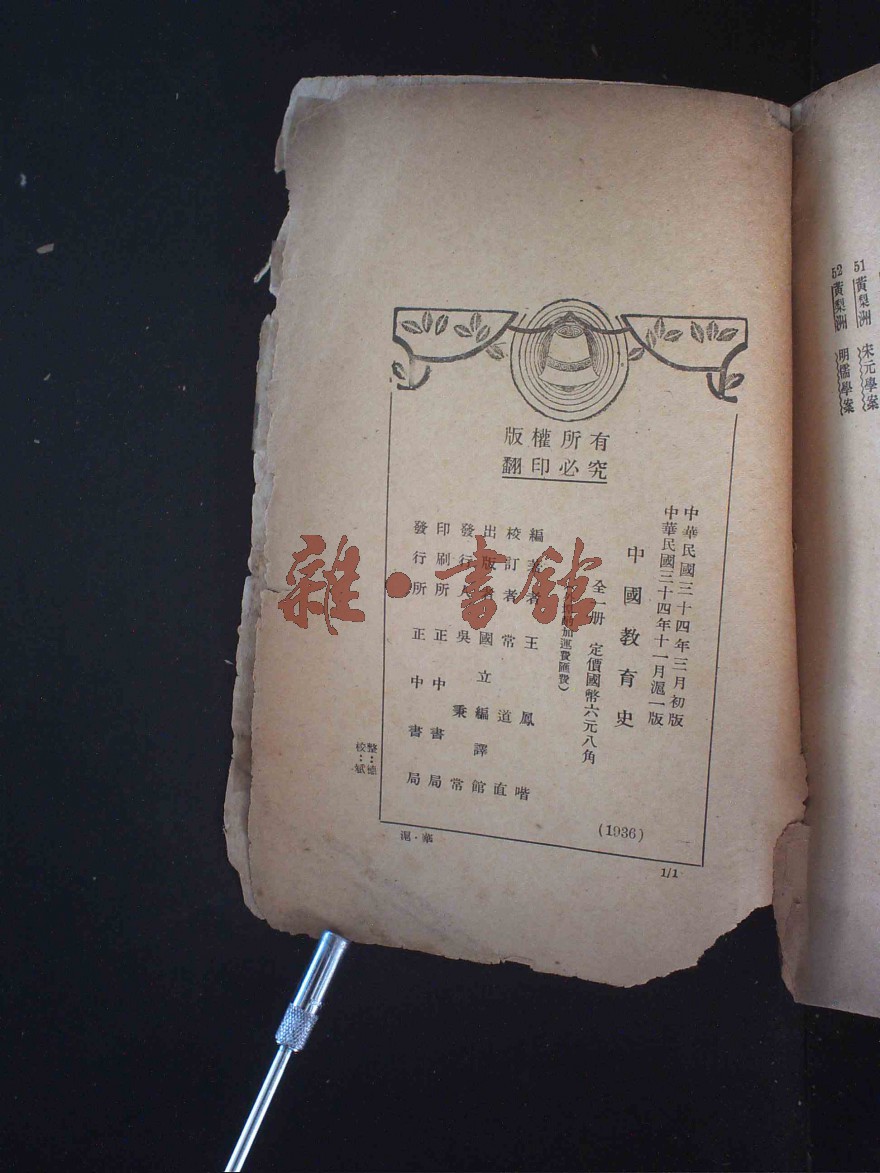 版權所有
翻印必究
中華民國三十四年三月初版
中華民國三十四年十一月滬一版
中國教育史
全一册 定價國幣六元八角
加運費匯費）
編著者 王鳳喈
校訂者 常道直
出版者 國立編譯館
發行人 吳秉常
印刷所 正中書局
發行所 正中書局
整：德
校：斌
(1936)
滬·華
1/1
51 黃梨洲 宋元學案
52 黃梨洲 明儒學案
雜·書館